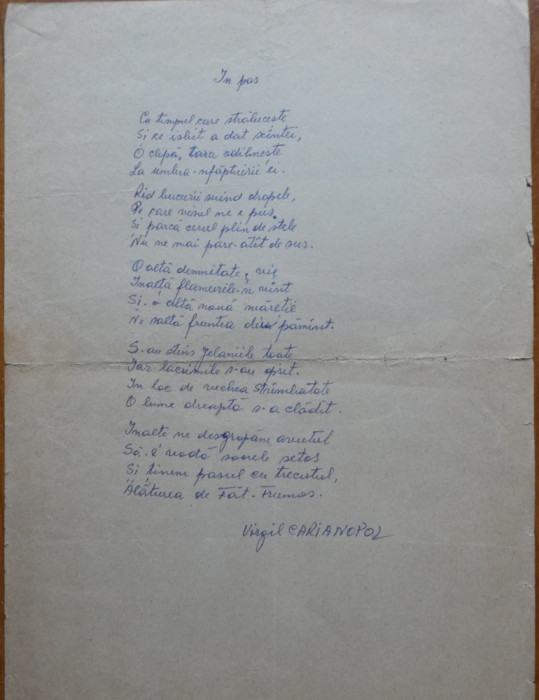 In pas
Cu timpul care străluceste
Si ce isbit a dat scîntei,
O clipă, tara odihneste
La umbra-nfăptuirii ei.
Rîd bucurii suind drapele,
Pe care visul ne e pus.
Si parcă cerul plin de stele
Nu ne mai pare-atît de sus.
O altă demnitate, vie
Inalță flamurile-n vînt
Si-o altă nouă măretie
Ne saltă fruntea din pămînt.
S-au stins jelaniile toate
Iar lacrimile s-au oprit.
In loc de vechea strîmbatate
O lume dreaptă s-a clădit.
Inalte ne desgropăm avutul
Să-l vadă soarele setos
Si tinem pasul cu trecutul,
Alăturea de Făt-Frumos.
Virgil CARIANOPOL